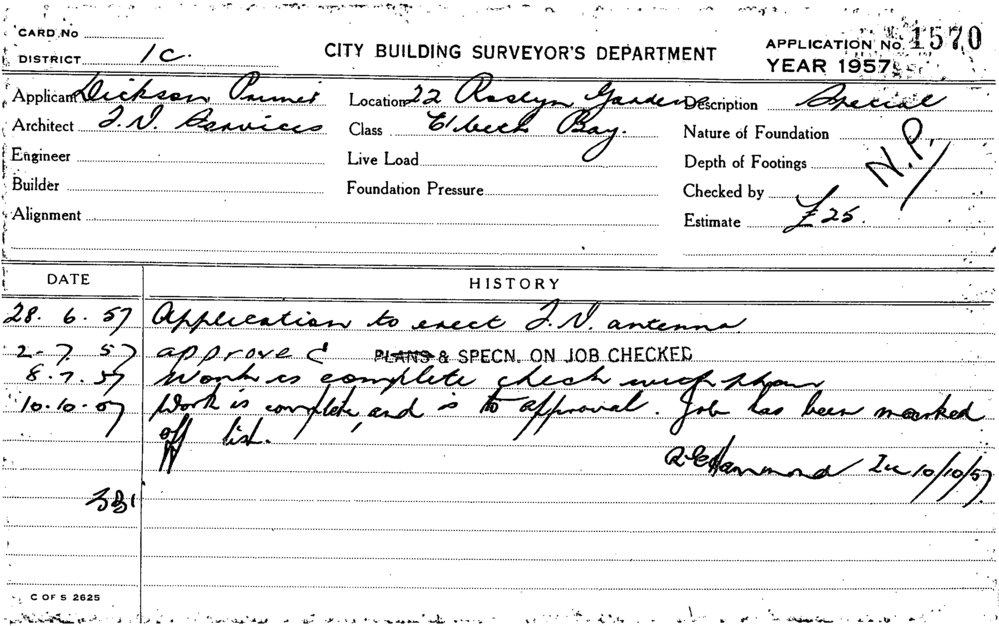 CARD No
DISTRICT 1C.
CITY BUILDING SURVEYOR'S DEPARTMENT
APPLICATION No. 1570
YEAR 1957
Applicant Dickson Primer
Location 22 Roslyn Gardens
Description Special
Architect T.V. Services
Class Elibeth Bay.
Nature of Foundation
N.P.
Engineer
Live Load
Depth of Footings
Builder
Foundation Pressure
Checked by
Alignment
Estimate £25.
DATE HISTORY
28. 6. 57 Application to erect T.V. antenna
2-7. 57 approved PLANS & SPECN. ON JOB CHECKED
8.7.57 Work is complete check
10.10.57 Work is complete, and is to approval. Job has been marked
off list.
Hammond 10/10/57
331
C OF S 2625